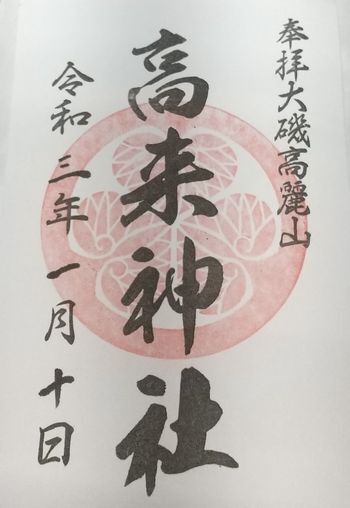 奉拝大磯高麗山
高来神社
令和三年一月十日